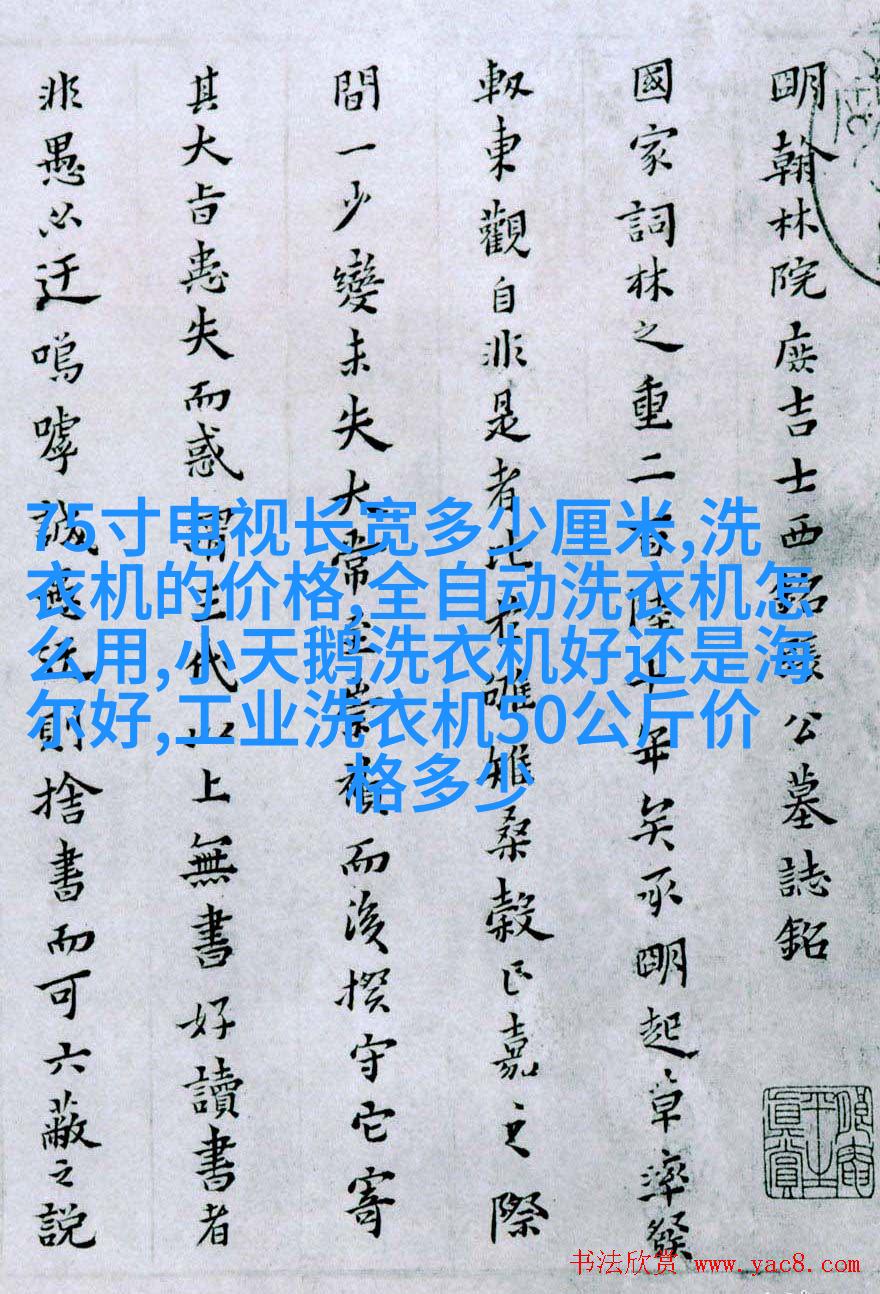 明翰林院庶吉士西銘張公墓誌銘
國家詞林之重二百陸十年矣承明起草率發
軔東觀自非是者比若雊雉桑穀正嘉之際
間一少變未失大常至積而後揆守它寄
其大旨患失而惑謂三代以上無書好讀書者
非愚必迂嗚嘑誠愚近則捨書而可六蔽之説
75寸电视长宽多少厘米,洗
衣机的价格,全自动洗衣机怎
么用,小天鹅洗衣机好还是海
尔好,工业洗衣机50公斤价
格多少
书法欣赏 www.yac8.com